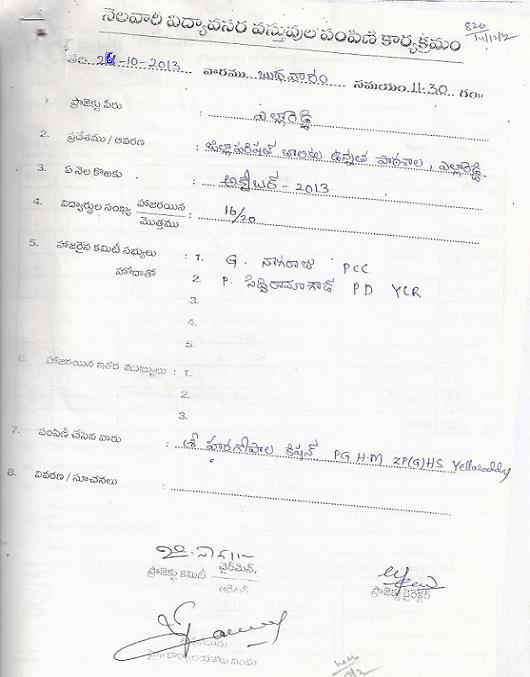 నెలవారీ విద్యావసర వస్తువుల పంపిణి కార్యక్రమం
820
తేది 24-10-2013 వారము బుధవారం సమయం 11.30 గం॥
1. ప్రాజెక్టు పేరు : ఎల్లారెడ్డి
2. ప్రదేశము / ఆవరణ : జిల్లాపరిషత్ బాలికల ఉన్నత పాఠశాల, ఎల్లారెడ్డి
3. ఏ నెల కొఱకు : అక్టోబర్ - 2013
4. విద్యార్థుల సంఖ్య హాజరయిన / మొత్తము : 16/20
5. హాజరైన కమిటీ సభ్యులు : 1. G. నాగరాజు PCC
హోదాతో 2. P. సిద్దిరామాగౌడ్ PD YLR
3.
4.
5.
6. హాజరయిన ఇతర ముఖ్యులు : 1.
2.
3.
7. పంపిణీ చేసిన వారు : శ్రీ హరగోపాల కిషన్ PG H.M ZP(G)HS Yellareddy
8. వివరణ / సూచనలు :
ప్రాజెక్టు కమిటీ చైర్‌మెన్,
ప్రాజెక్టు డైరెక్టర్